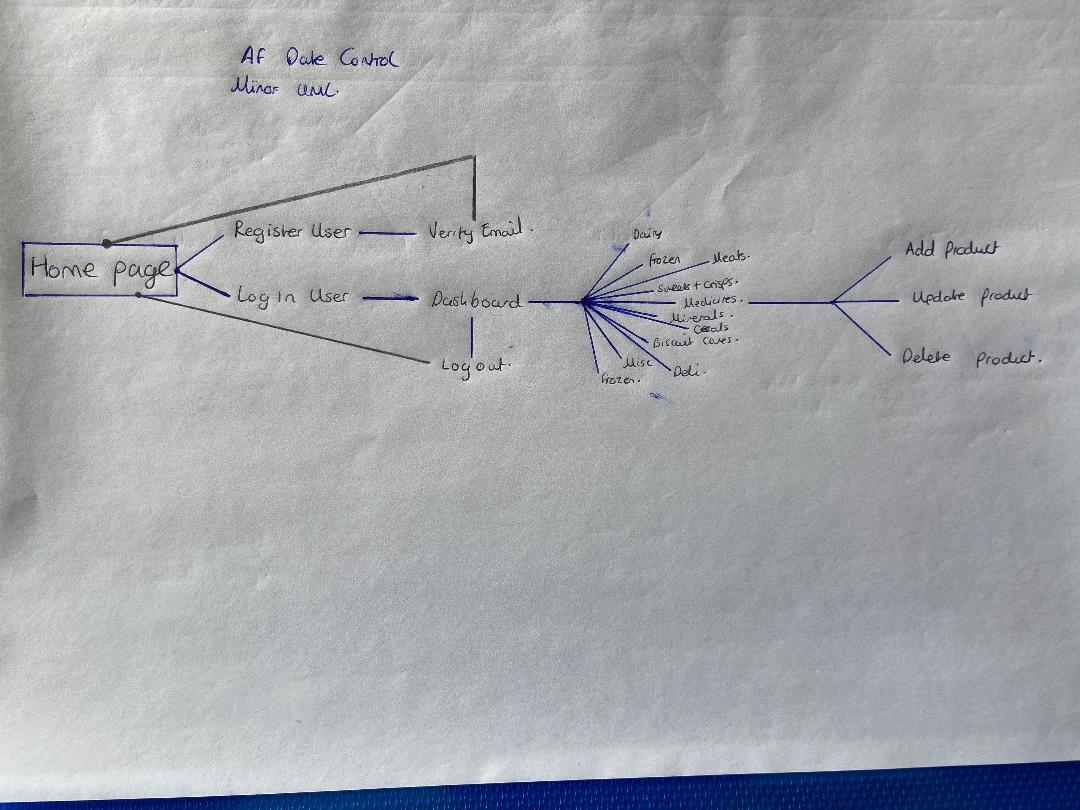 AF Date Control
Minor UML.
Register User
Verify Email.
Home page
Log In User
Dashboard
Log out.
Dairy
Frozen
Meats.
Sweets + Crisps.
Medicines.
Minerals.
Cereals
Biscuit Caves.
Misc
Deli.
Frozen.
Add Product
Update Product
Delete Product.